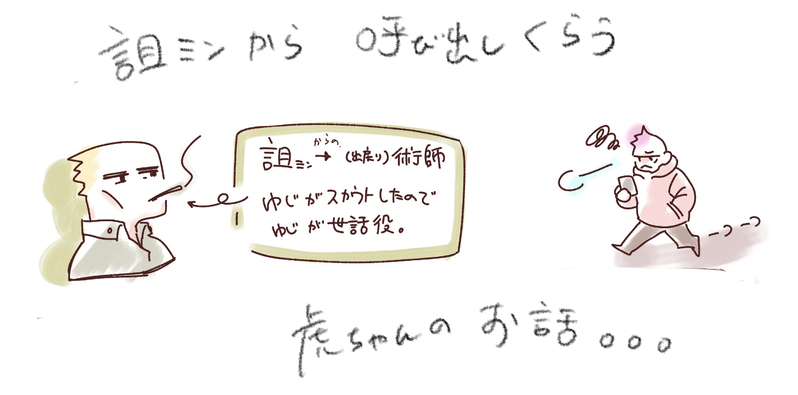 詛ミンから 呼び出しくらう
詛ミンからの→(出戻り)術師
ゆじがスカウトしたので
ゆじが世話役。
虎ちゃんのお話。。。